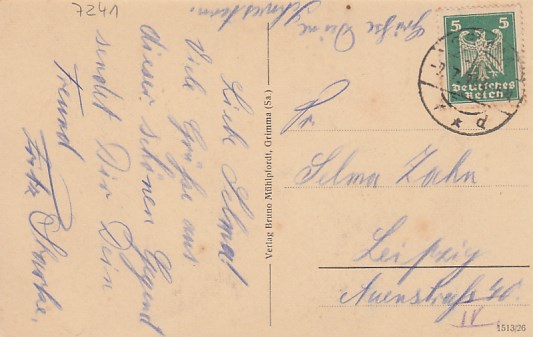 7241
Liebe Selma!
Viele Grüße aus
dieser schönen Gegend
sendet Dir Dein
Freund
Fritz Starke,
Grüße Deine
Schwestern.
Verlag Bruno Mühlpfordt, Grimma (Sa.)
5 5
Deutsches
Reich
Fr.
Selma Zahn
Leipzig
Auenstraße 40.
IV.
1513/26